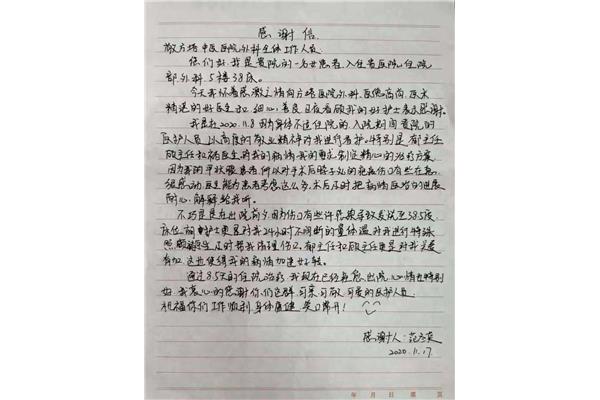 感谢信
敬方塔中医医院外科全体工作人员:
你们好,我是贵院的一名女患者,入住贵医院住院
部外科,5楼38床。
今天我怀着感激之情向方塔医院外科,医德高尚,医术
精湛的好医生和细心,善良日夜看顾我的好护士表示感谢。
我是在2020.11.8因为身体不适住院的,入院期间贵院的
医护人员以高度的敬业精神对我进行看护。特别是郁主任
欧主任和杨医生,将我的病情我的要求制定精心的治疗方案
因为我的甲状腺患者,所以对手术后脖子处的疤痕伤口有些在意,
很感动医生能为患者考虑这么多,术后及时把病情医治的进展
耐心,解释给我听。
不巧是是在出院前夕,因为伤口有些许感染导致发烧至38.5度
床位 护士更是对我24小时不间断的量体温,对我进行特殊
照顾 医生及时帮我清理伤口,郁主任和欧主任更是对我关爱
有加,这也使得我的病情加速好转。
通过8.5天的住院治疗,我现在已经痊愈出院,心情也特别
好,我衷心的感谢你们这群可亲可敬可爱的医护人员
祝福你们工作顺利身体康健 笑口常开!
感谢人:范
2020.11.17
年 月 日 第 页